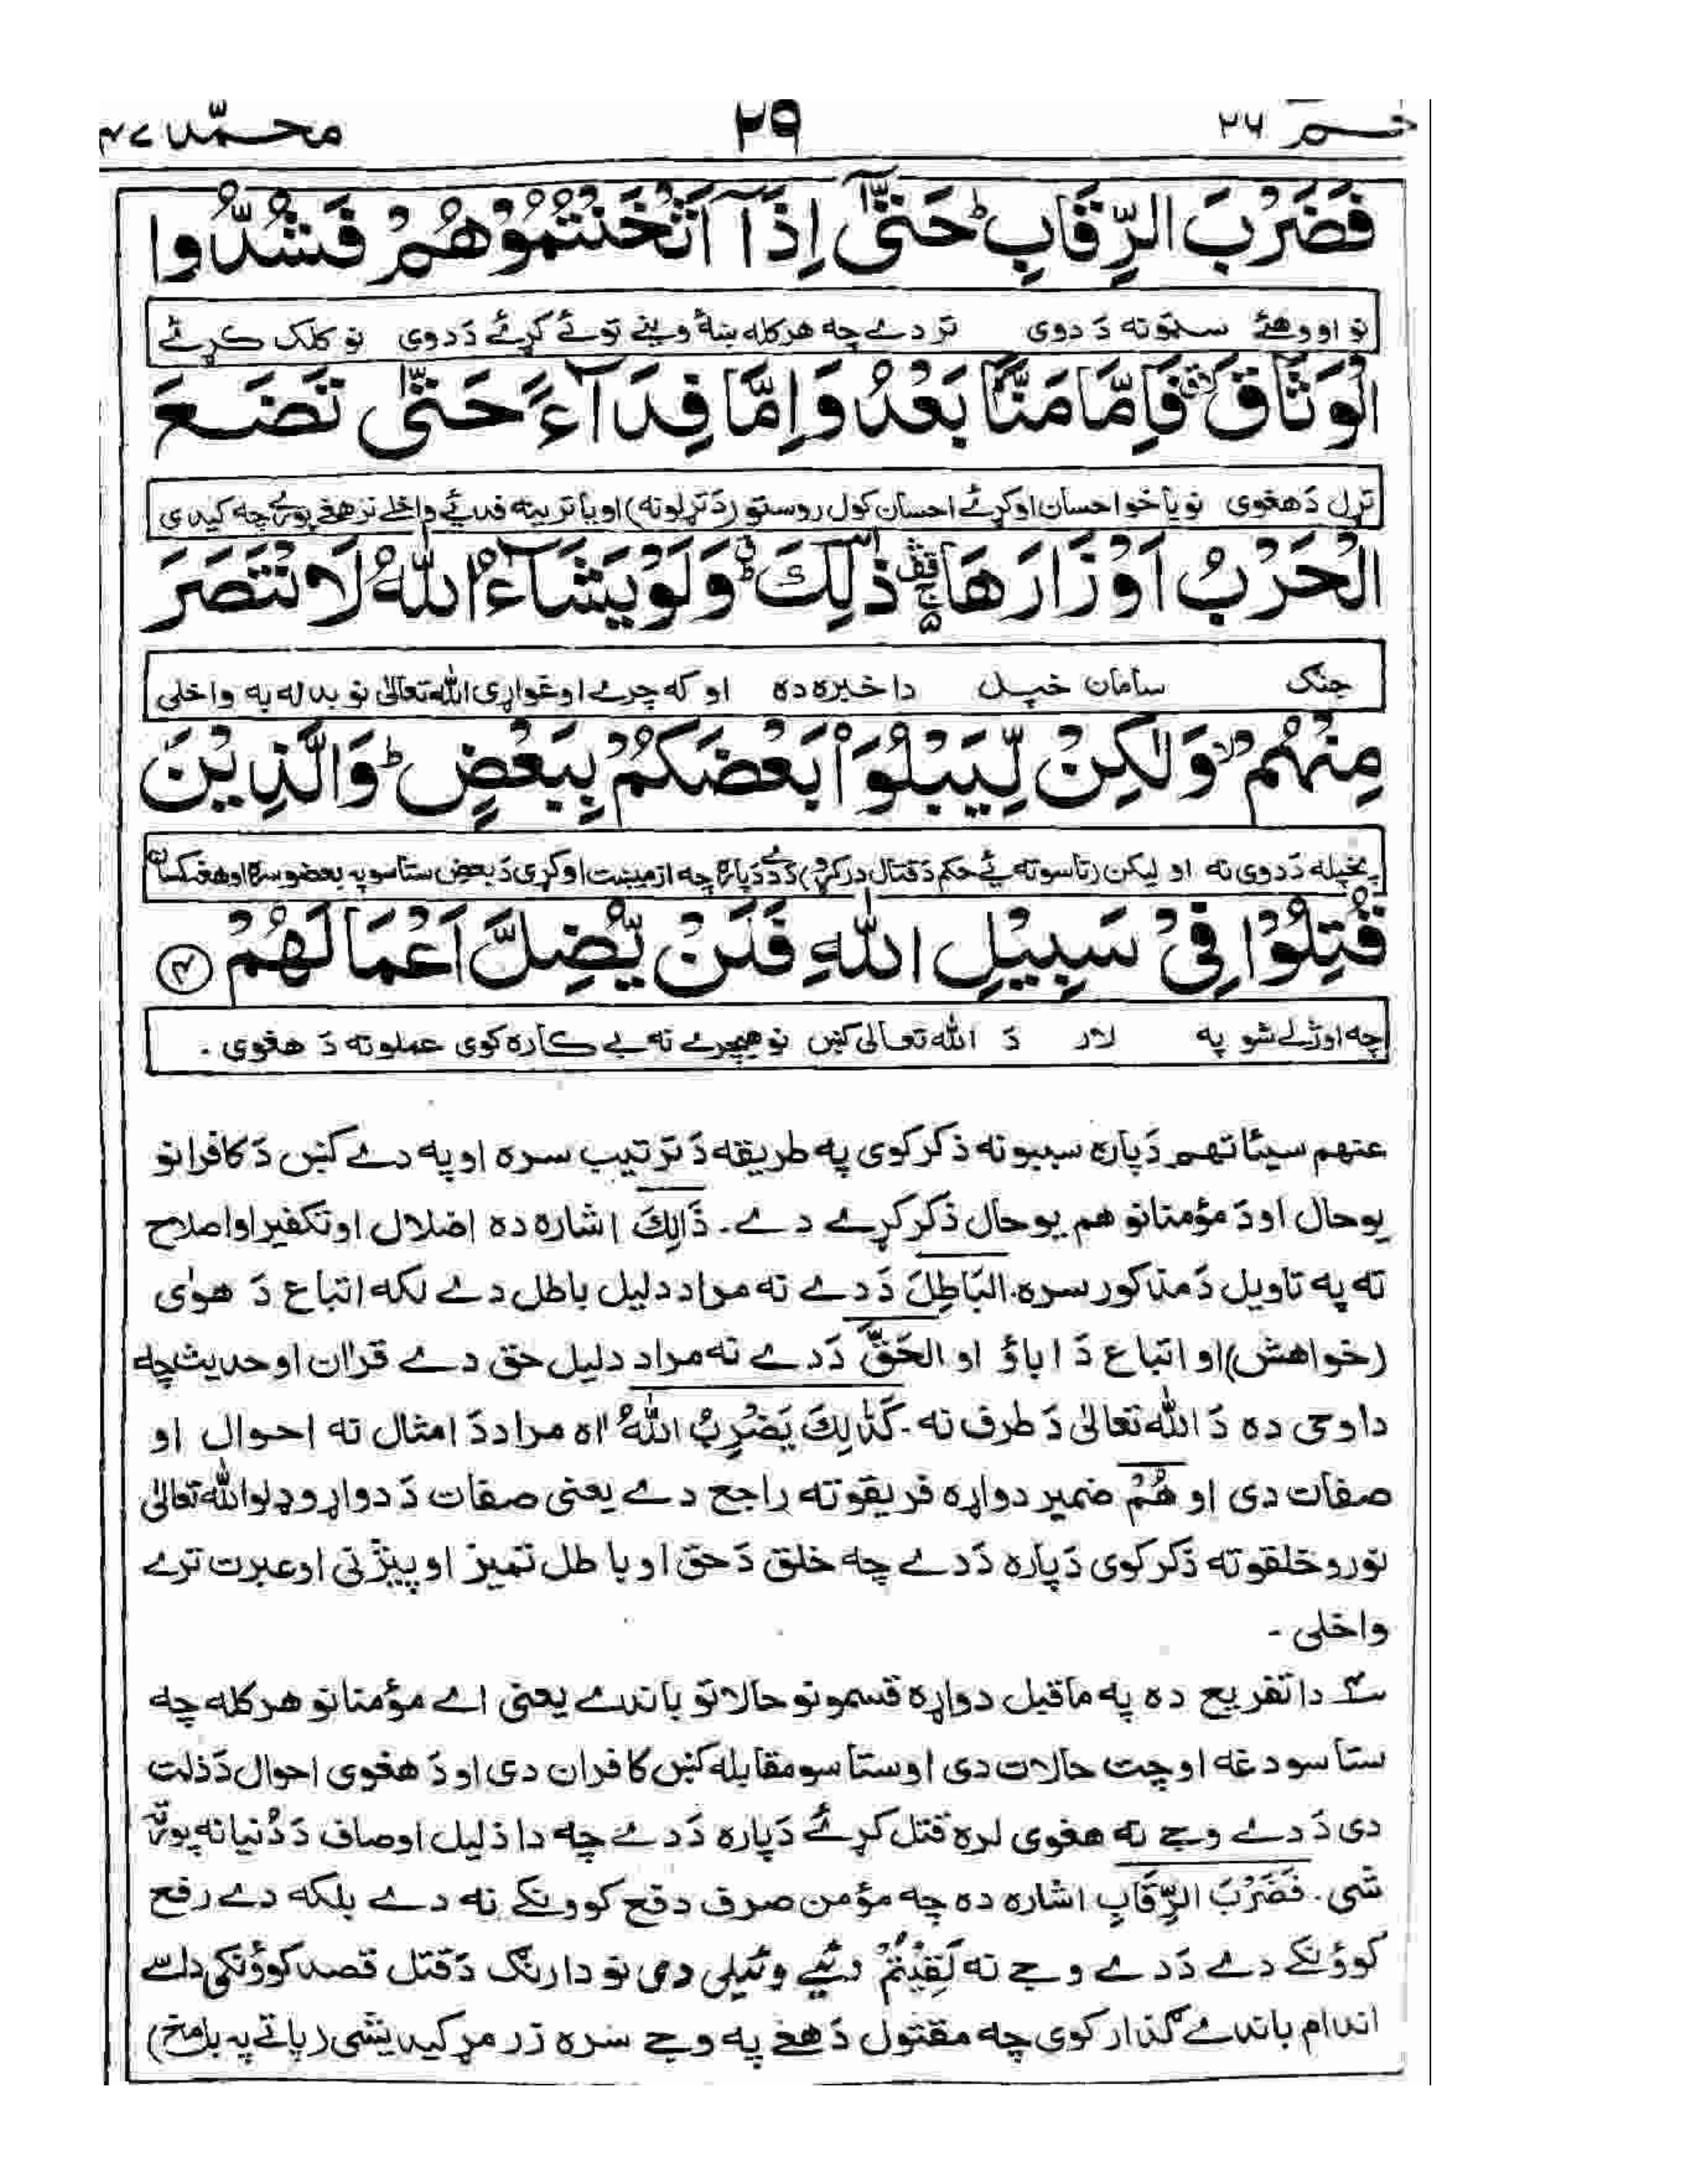 حٰمٓ ٢٦ ٢٩ محمّد ٤٧
فَضَرْبَ الرِّقَابِ ؕ حَتّٰۤى اِذَاۤ اَثْخَنْتُمُوْهُمْ فَشُدُّوا
نو اووهئے سټونه دَ دوی تر دے چه هرکله ښۀ وینے توئے کړئے دَ دوی نو کلک کړئے
الْوَثَاقَ ۙ فَاِمَّا مَنًّۢا بَعْدُ وَاِمَّا فِدَآءً حَتّٰى تَضَعَ
تړل دَ هغوی نو یا خو احسان اوکړئے احسان کول روستو (دَ تړلو نه) او یا تربینه فدیے واخلے تر هغے پورے چه کیدی
الْحَرْبُ اَوْزَارَهَا ۛۚ ذٰلِكَ ؕۛ وَلَوْ يَشَآءُ اللّٰهُ لَانْتَصَرَ
جنګ سامان خپل دا خبره ده او که چرے اوغواړی الله تعالیٰ نو بدله به واخلی
مِنْهُمْ ۙ وَلٰكِنْ لِّيَبْلُوَا۟ بَعْضَكُمْ بِبَعْضٍ ؕ وَالَّذِيْنَ
پخپله دَ دوی نه او لیکن (تاسو ته یے حکم دَ قتال درکړو) دَ دے دَپاره چه ازمیښت اوکړی دَ بعض ستاسو په بعضو سره او هغه کسان
قُتِلُوْا فِىْ سَبِيْلِ اللّٰهِ فَلَنْ يُّضِلَّ اَعْمَالَهُمْ ﴿٤﴾
چه اوژلے شو په لار دَ الله تعالی کښ نو هیچرے نه بے کاره کوی عملونه دَ هغوی .
عنهم سیئاتهم دَپاره سببونه ذکر کوی په طریقه دَ ترتیب سره او په دے کښ دَ کافرانو
یو حال او دَ مؤمنانو هم یو حال ذکر کړے دے . ذَالِكَ اشاره ده اضلال او تکفیر او اصلاح
ته په تاویل دَ مذکور سره . البَاطِلَ دَ دے نه مراد دلیل باطل دے لکه اتباع دَ هوٰی
(خواهش) او اتباع دَ اباؤ او الحَقَّ دَ دے نه مراد دلیل حق دے قران او حدیث چه
دا وحی ده دَ الله تعالیٰ دَ طرف نه . كَذَالِكَ يَضْرِبُ اللّٰهُ اه مراد دَ امثال نه احوال او
صفات دی او هُمْ ضمیر دواړه فریقو ته راجع دے یعنی صفات دَ دواړو ډلو الله تعالیٰ
نورو خلقو ته ذکر کوی دَپاره دَ دے چه خلق دَ حق او باطل تمیز او پیژنی او عبرت ترے
واخلی -
٤ دا تفریع ده په ماقبل دواړه قسمونو حالاتو باندے یعنی اے مؤمنانو هرکله چه
ستاسو دغه اوچت حالات دی او ستاسو مقابله کښ کافران دی او دَ هغوی احوال دَ ذلت
دی دَ دے وجے نه هغوی لره قتل کړئے دَپاره دَ دے چه دا ذلیل اوصاف دَ دُنیا نه پورته
شی . فَضَرْبَ الرِّقَابِ اشاره ده چه مؤمن صرف دفع کوونکے نه دے بلکه دے رفع
کوؤنکے دے دَ دے وجے نه لَقِيْتُمْ ئیے وئیلی دی نو دارنګ دَ قتل قصد کوؤنکی داسے
اندام باندے ګذار کوی چه مقتول دَ هغے په وجے سره زر مړ کیدیشی (پاتے په بل مخ)